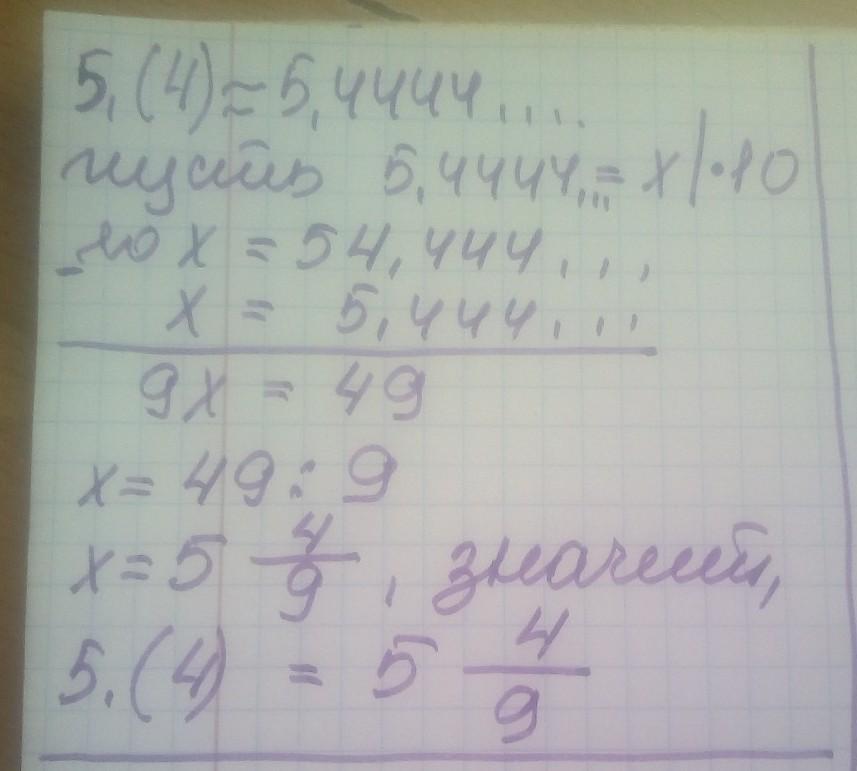 5,(4)≈5,4444....
пусть 5,4444...= x|·10
-10x = 54,444...
x = 5,444...
9x = 49
x = 49 : 9
x = 5 4/9, значит,
5,(4) = 5 4/9